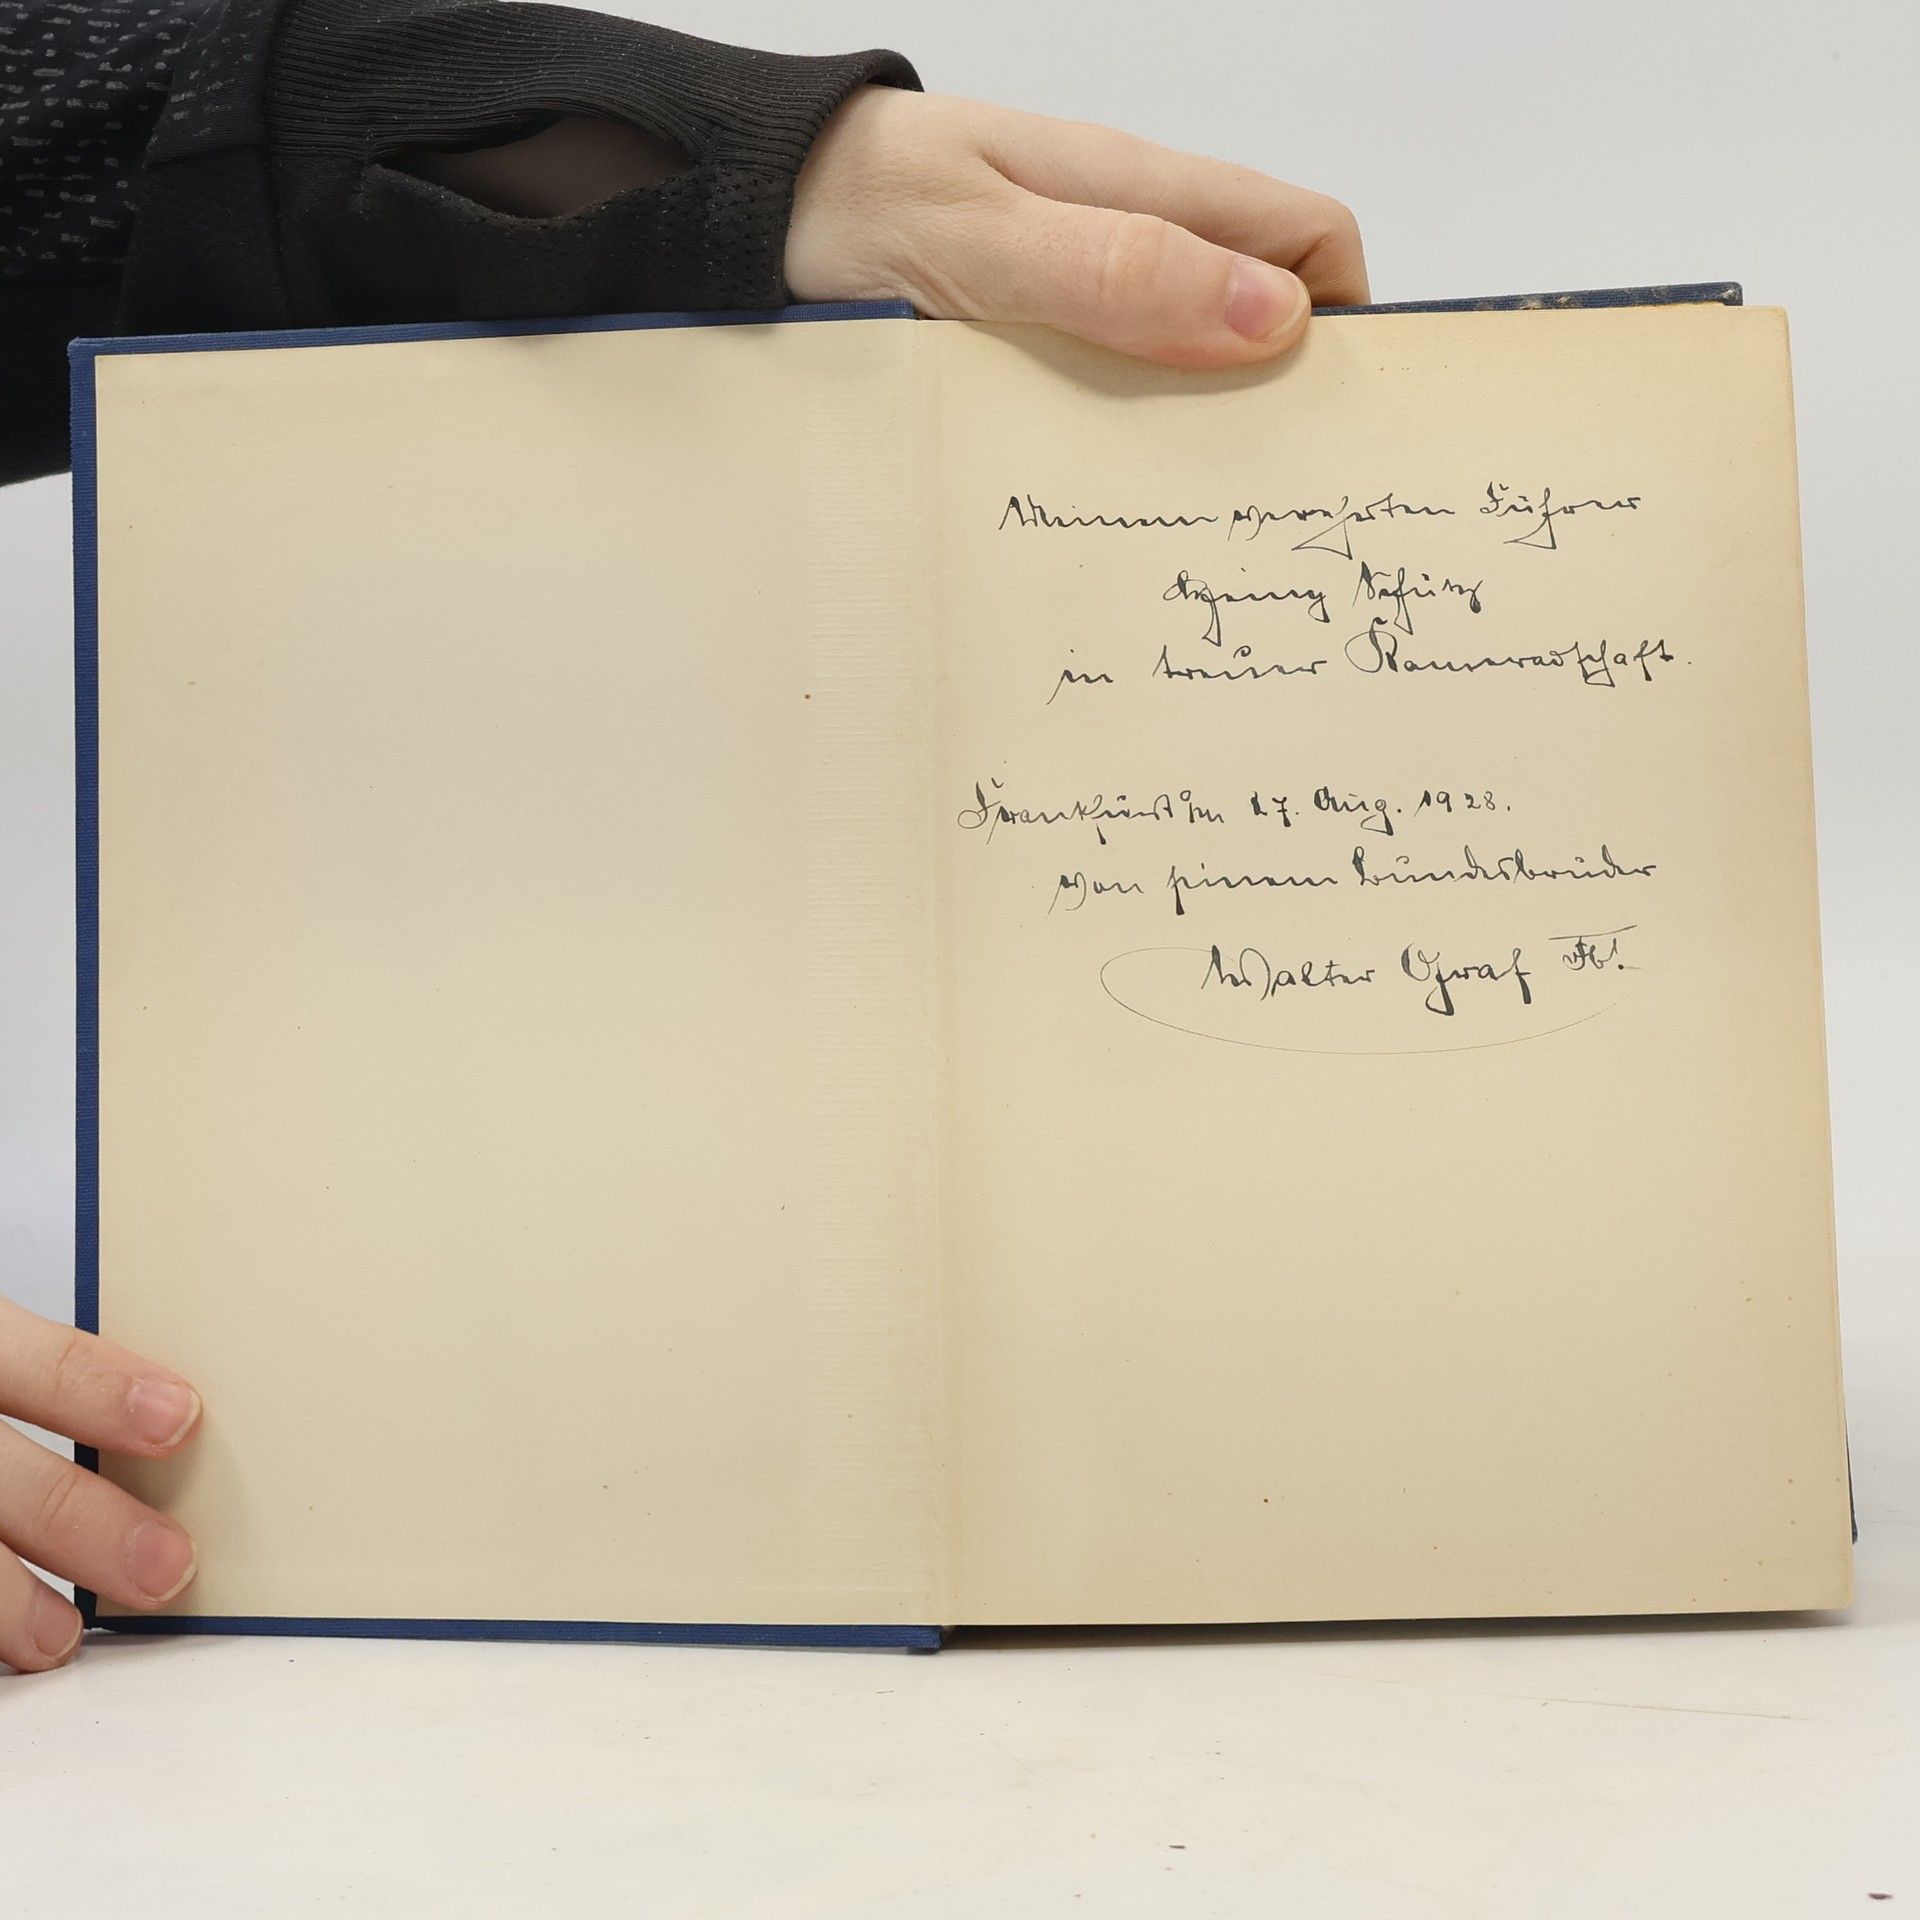 Meinem verehrten Führer
Heinz Schütz
in treuer Kameradschaft.
Frankfurt a/M 27. Aug. 1928.
von seinem Bundesbruder
Walter Graf